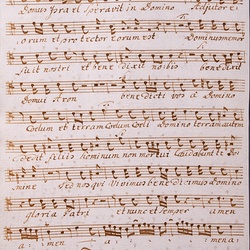 Domus Israel speravit in Domino Adjutor e
orum et protector eorum est Dominus memor
fuit nostri et bene dixit nobis bene dixit
Domus Aron benedicti vos a Domino
Coelum et terram Coelum Coeli Domino terram autem
dedit filiis hominum non mortui laudabunt te Do
mine Sed nos qui vivimus bene dicimus Domino
gloria Patri et nunc et semper amen
a men a men